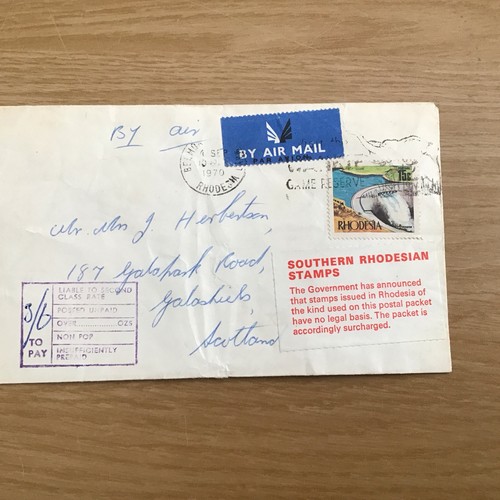 By air
BY AIR MAIL
PAR AVION
4 SEP
1970
RHODESIA
GAME RESERVE
15c
RHODESIA
Mr. Mrs J Herbertson,
187 Galapark Road,
Galashiels,
Scotland
SOUTHERN RHODESIAN
STAMPS
The Government has announced
that stamps issued in Rhodesia of
the kind used on this postal packet
have no legal basis. The packet is
accordingly surcharged.
3/6
TO
PAY
LIABLE TO SECOND
CLASS RATE
POSTED UNPAID
OVER OZS
NON POP
INSUFFICIENTLY
PREPAID